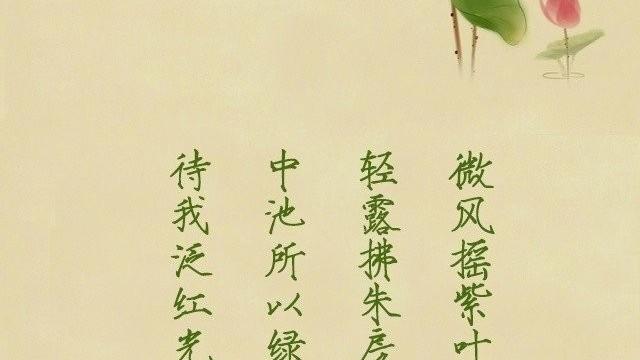 微风摇紫叶
轻露拂朱房
中池所以绿
待我泛红光